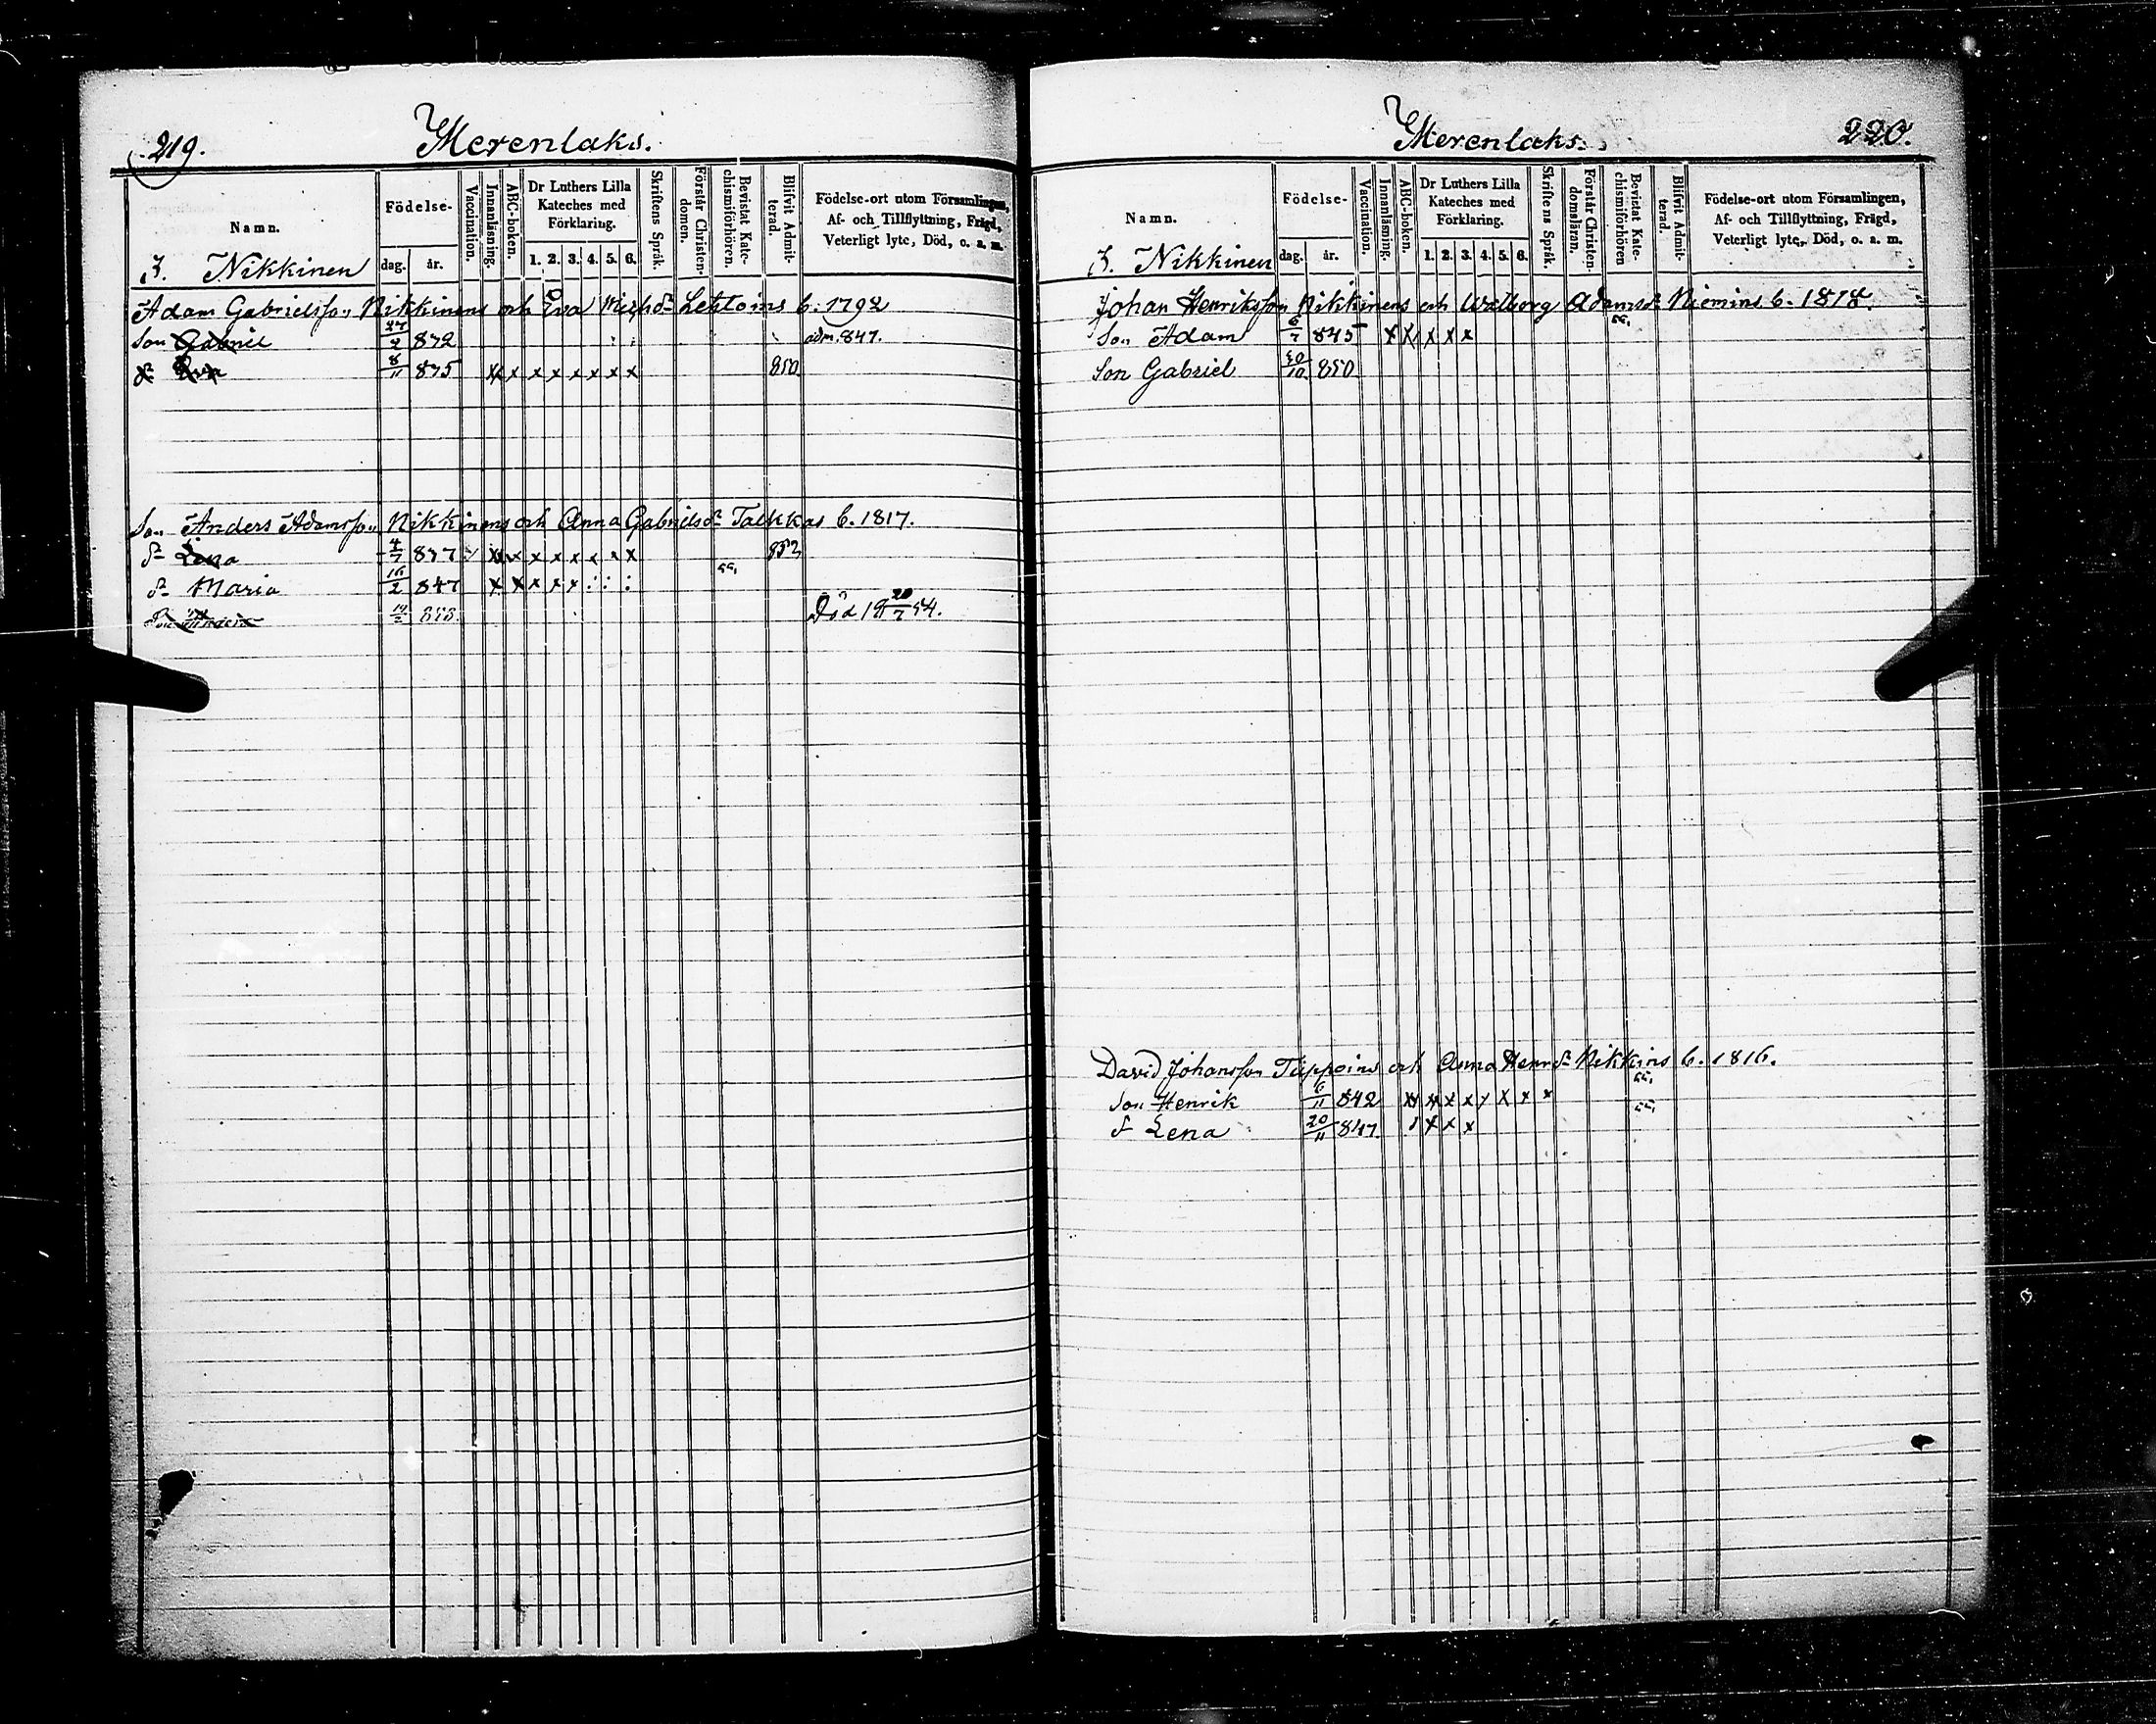 219.
Merenlaks.
Namn.
Födelse-
dag.
år.
Vaccination.
Innanläsning.
ABC-boken.
Dr Luthers Lilla
Kateches med
Förklaring.
1. 2. 3. 4. 5. 6.
Skriftens Språk.
Förstår Christen-
domen.
Bevistat Kate-
chismiförhören.
Blifvit Admit-
terad.
Födelse-ort utom Församlingen,
Af- och Tillflyttning, Frägd,
Veterligt lyte, Död, o. a. m.
3. Nikkinen
Adam Gabrielsson Nikkinens och Eva Michsdr Lehtoins b. 1792
Son Gabriel 27/2 832 adm. 847.
dr 8/11 835 x x x x x x x x 850
Son Anders Adamsson Nikkinens och Anna Gabrielsdr Talkkas b. 1817.
dr Lena 4/7 837 x x x x x x x x 852
dr Maria 16/2 847 x x x x x : : : 55,
Son Anders 19/2 853. Död 18 20/7 54.
Merenlaks.
220.
Namn.
Födelse-
dag.
år.
Vaccination.
Innanläsning.
ABC-boken.
Dr Luthers Lilla
Kateches med
Förklaring.
1. 2. 3. 4. 5. 6.
Skriftens Språk.
Förstår Christen-
domsläran.
Bevistat Kate-
chismiförhören
Blifvit Admit-
terad.
Födelse-ort utom Församlingen,
Af- och Tillflyttning, Frägd,
Veterligt lyte, Död, o. a. m.
3. Nikkinen
Johan Henriksson Nikkinens och Walborg Adamsdr Niemins b. 1818.
Son Adam 6/7 845 x x x x x 55,
Son Gabriel 30/10 850
David Johansson Tuppoins och Anna Henrsdr Nikkins b. 1816.
Son Henrik 6/11 842 x x x x x x x x 55,
dr Lena 20/11 847. x x x 55,